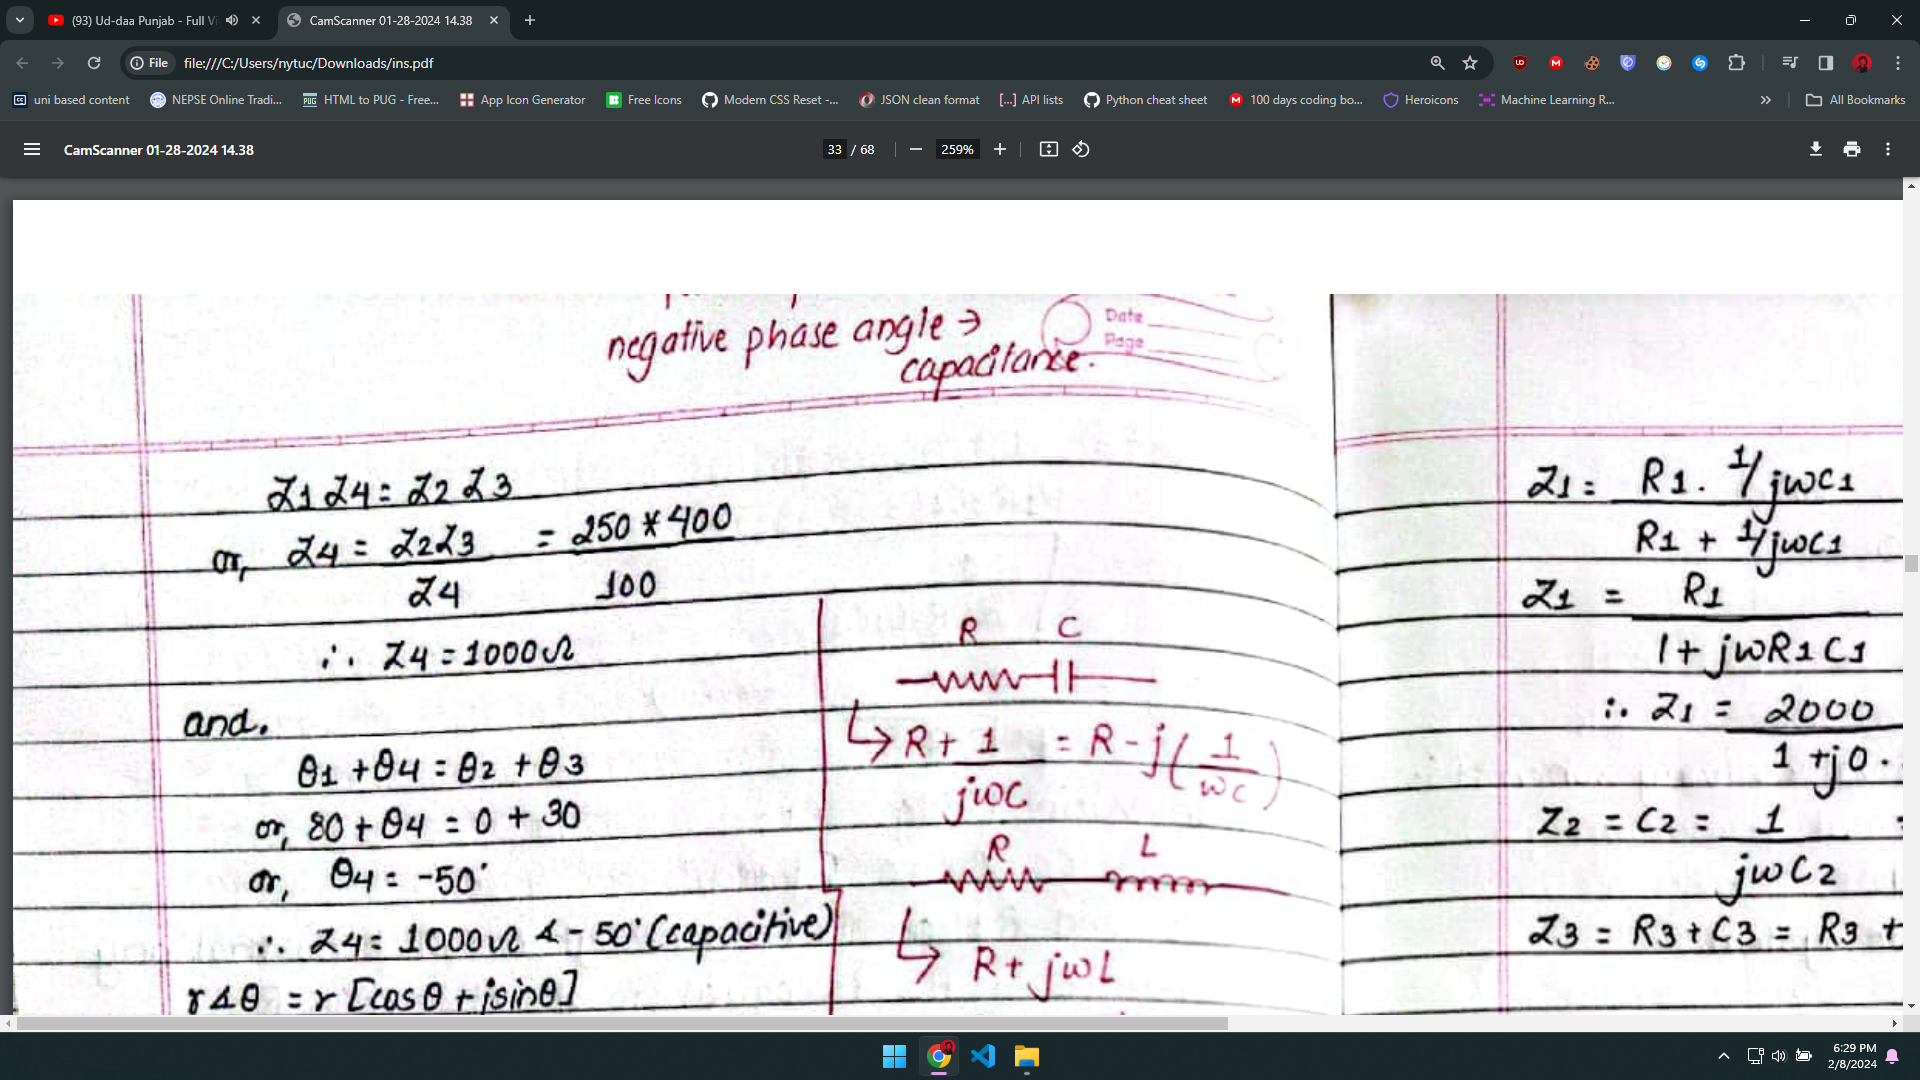 (93) Ud-daa Punjab - Full Vi
CamScanner 01-28-2024 14.38
File
file:///C:/Users/nytuc/Downloads/ins.pdf
uni based content
NEPSE Online Tradi...
HTML to PUG - Free...
App Icon Generator
Free Icons
Modern CSS Reset -...
JSON clean format
API lists
Python cheat sheet
100 days coding bo...
Heroicons
Machine Learning R...
All Bookmarks
CamScanner 01-28-2024 14.38
33 / 68
259%
negative phase angle →
capacitance.
Date
Page
Z1 Z4 = Z2 Z3
or, Z4 = Z2Z3 = 250 * 400
Z4 100
∴ Z4 = 1000Ω
and.
θ1 + θ4 = θ2 + θ3
or, 80 + θ4 = 0 + 30
or, θ4 = -50°
∴ Z4 = 1000Ω ∠ - 50° (capacitive)
r∠θ = r [cosθ + jsinθ]
R C
R + 1 = R - j( 1 )
jωC ωC
R L
R + jωL
Z1 = R1 . 1/jωC1
R1 + 1/jωC1
Z1 = R1
1 + jωR1C1
∴ Z1 = 2000
1 + j0.
Z2 = C2 = 1 =
jωC2
Z3 = R3 + C3 = R3 +
6:29 PM
2/8/2024